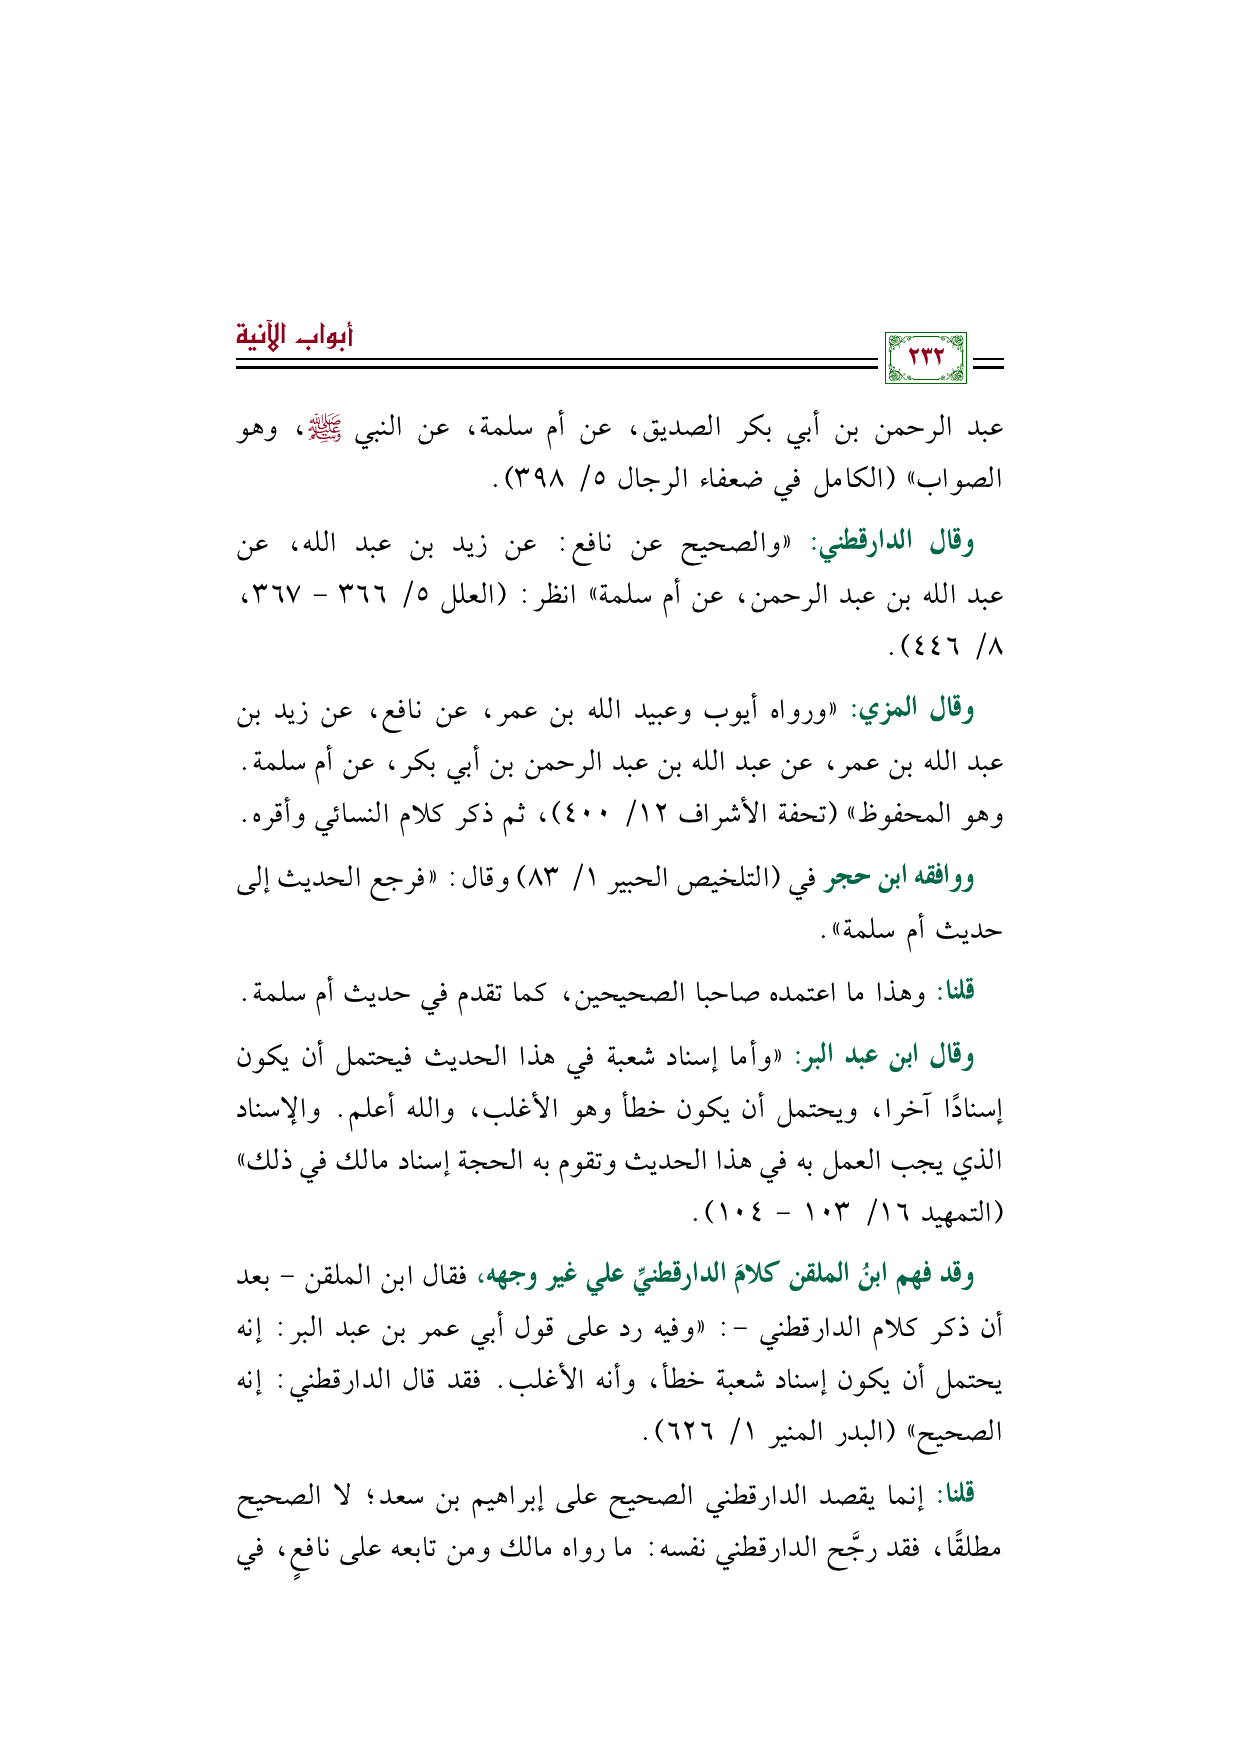 أبواب الآنية
٢٣٢
عبد الرحمن بن أبي بكر الصديق، عن أم سلمة، عن النبي ﷺ، وهو
الصواب» (الكامل في ضعفاء الرجال ٥/ ٣٩٨).
وقال الدارقطني: «والصحيح عن نافع: عن زيد بن عبد الله، عن
عبد الله بن عبد الرحمن، عن أم سلمة» انظر: (العلل ٥/ ٣٦٦ – ٣٦٧،
٨/ ٤٤٦).
وقال المزي: «ورواه أيوب وعبيد الله بن عمر، عن نافع، عن زيد بن
عبد الله بن عمر، عن عبد الله بن عبد الرحمن بن أبي بكر، عن أم سلمة.
وهو المحفوظ» (تحفة الأشراف ١٢/ ٤٠٠)، ثم ذكر كلام النسائي وأقره.
ووافقه ابن حجر في (التلخيص الحبير ١/ ٨٣) وقال: «فرجع الحديث إلى
حديث أم سلمة».
قلنا: وهذا ما اعتمده صاحبا الصحيحين، كما تقدم في حديث أم سلمة.
وقال ابن عبد البر: «وأما إسناد شعبة في هذا الحديث فيحتمل أن يكون
إسنادًا آخرا، ويحتمل أن يكون خطأ وهو الأغلب، والله أعلم. والإسناد
الذي يجب العمل به في هذا الحديث وتقوم به الحجة إسناد مالك في ذلك»
(التمهيد ١٦/ ١٠٣ – ١٠٤).
وقد فهم ابنُ الملقن كلامَ الدارقطنيِّ علي غير وجهه، فقال ابن الملقن – بعد
أن ذكر كلام الدارقطني –: «وفيه رد على قول أبي عمر بن عبد البر: إنه
يحتمل أن يكون إسناد شعبة خطأ، وأنه الأغلب. فقد قال الدارقطني: إنه
الصحيح» (البدر المنير ١/ ٦٢٦).
قلنا: إنما يقصد الدارقطني الصحيح على إبراهيم بن سعد؛ لا الصحيح
مطلقًا، فقد رجَّح الدارقطني نفسه: ما رواه مالك ومن تابعه على نافعٍ، في